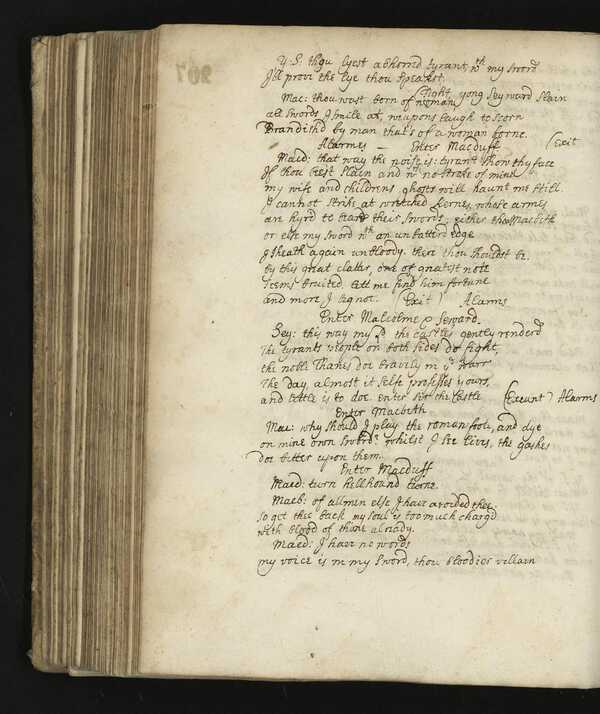 Y: S: thou lyest abhorred tyrant, wth my sword
I'le prove the lye thou speakst.
fight, yong Seyward slain
Mac: thou wast born of woman
all swords I smile at, weapons laugh to scorn
Brandish'd by man that's of a woman borne. (Exit
Alarmes — Enter Macduff
Macd: that way the noise is: tyrant show thy face
If thou beest slain and wth no stroke of mine
my wife and childrens ghosts will haunt me still.
I cannot strike at wretched kernes, whose armes
are hyrd to bear their swords; either thou Macbeth
or else my sword wth an unbatterd edge
I sheath again unbloody. there thou shouldst be.
by this great clatter, one of greatest note
seems bruited. Let me find him fortune
and more I beg not. (Exit) Alarms
Enter Malcolme & Seward.
Sey: this way my Ld the castles gently renderd
the tyrants people on both sides do fight,
the noble Thanes doe bravily in ye warr
the day, almost it selfe professes yours,
and little is to doe. enter Sir the Castle (Exeunt) Alarms
Enter Macbeth
Mac: why should I play the roman foole, and dye
on mine own sword? whilst I see lives, the gashes
doe better upon them.
Enter Macduff
Macd: turn hellhound turne.
Macb: of all men else I have avoided thee.
so get thee back my soul is too much chargd
with blood of thine already.
Macd: I have no words
my voice is in my sword, thou bloodier villain
207